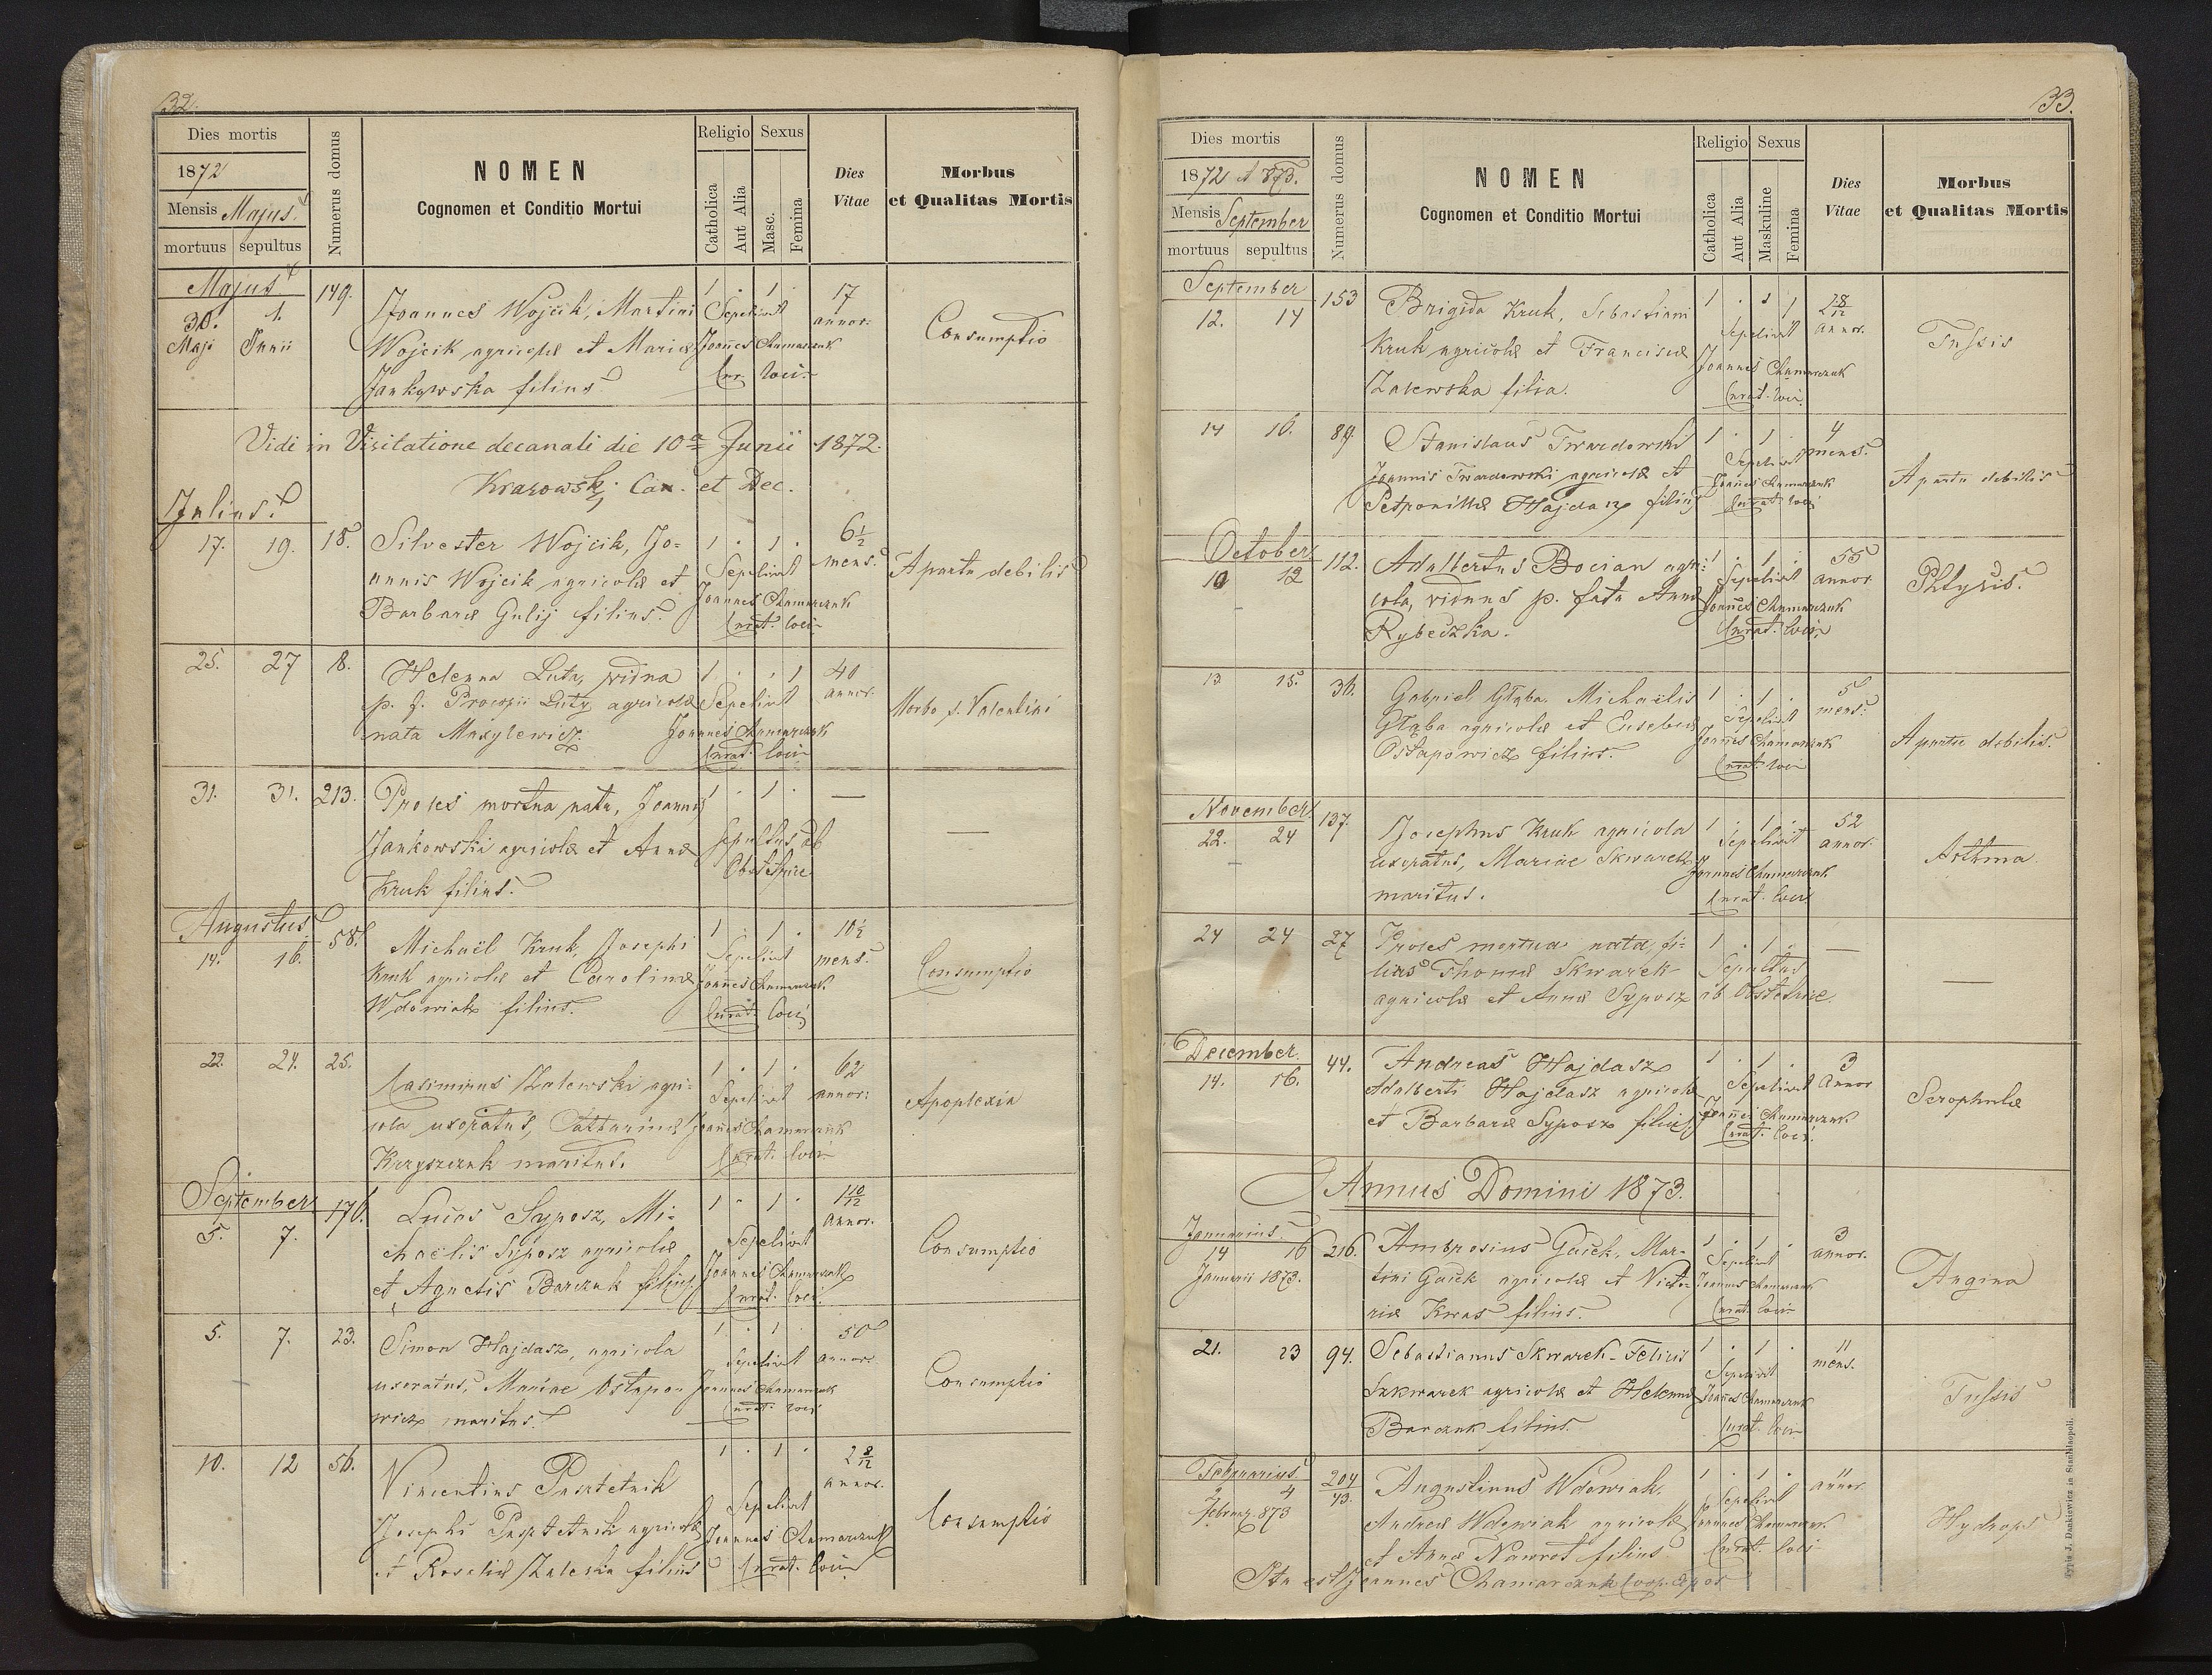 32.
Dies mortis
1872
Mensis Majus.
mortuus sepultus
Numerus domus
NOMEN
Cognomen et Conditio Mortui
Religio Sexus
Catholica
Aut Alia
Masc.
Femina
Dies
Vitae
Morbus
et Qualitas Mortis
Majus
30. 1. 149. Joannes Wojcik, Martini 1 . 1 . 17
Maji Junii Wojcik agricolæ et Mariæ Sepelivit annor. Consumptio
Jankowska filius Joannes Chamarczuk
Cur. loci
Vidi in Visitatione decanali die 10a Junii 1872.
Krasowski Can. et Dec.
Julius.
17. 19. 18. Silvester Wojcik, Jo- 1 . 1 . 6½
annis Wojcik agricolæ et Sepelivit mens. A partu debilis
Barbaræ Gulij filius. Joannes Chamarczuk
Curat. loci
25. 27 8. Helenna Luta, vidua 1 . . 1 40
p. f. Procopii Luty agricolæ Sepelivit annor. Morbo s. Valentini
nata Maxylewicz. Joannes Chamarczuk
Curat. loci
31. 31. 213. Proles mortua nata, Joannis 1 . 1 . —
Jankowski agricolæ et Annæ Sepultus ab —
Kruk filius. Obstetrice
Augustus
14. 16. 58. Michaël Kruk, Josephi 1 . 1 . 10½
Kruk agricolæ et Carolinæ Sepelivit mens. Consumptio
Wdowiak filius. Joannes Chamarczuk
Curat. loci
22. 24. 25. Casimirus Zalewski agri- 1 . 1 . 62
cola uxoratus, Cattarinæ Sepelivit annor. Apoplexia
Krzyszczuk maritus. Joannes Chamarczuk
Curat. loci
September
5. 7. 176. Lucas Syposz, Mi- 1 . 1 . 1 10/12
chaëlis Syposz agricolæ Sepelivit annor. Consumptio
et Agnetis Barczuk filius. Joannes Chamarczuk
Curat. loci
5. 7. 23. Simon Hajdasz, agricola 1 . 1 . 50
uxoratus, Mariae Ostapo- Sepelivit annor. Consumptio
wicz maritus. Joannes Chamarczuk
Curat. loci
10. 12 56. Vincentius Pasztetnik 1 . 1 . 2 8/12
Josephi Pasztetnik agricolæ Sepelivit annor. Consumptio
et Rosaliæ Zaleska filius Joannes Chamarczuk
Curat. loci
33.
Dies mortis
1872 et 873.
Mensis September
mortuus sepultus
Numerus domus
NOMEN
Cognomen et Conditio Mortui
Religio Sexus
Catholica
Aut Alia
Maskuline
Femina
Dies
Vitae
Morbus
et Qualitas Mortis
September
12. 14 153 Brigida Kruk, Sebastiani 1 . . 1
Kruk agricolæ et Franciscæ Sepelivit annor. Tussis
Zalewska filia. Joannes Chamarczuk
Curat. loci
14 16. 89. Stanislaus Twardowski 1 . 1 . 4
Joannis Twardowski agricolæ et Sepelivit mens. A partu debilis
Petronillæ Hajdasz filius Joannes Chamarczuk
Curat. loci
October
10 12 112. Adalbertus Bocian agri- 1 . 1 . 55
cola, viduus p. fata Annæ Sepelivit annor Phtysis.
Rybeczka. Joannes Chamarczuk
Curat. loci
13. 15. 36. Gabriel Głąba. Michaëlis 1 . 1 . 5
Głąba agricolæ et Eusebiæ Sepelivit mens. A partu debilis.
Ostapowicz filius. Joannes Chamarczuk
Curat. loci
November
22. 24 137. Josephus Kruk agricola 1 . 1 . 52
uxoratus, Mariae Skwarek Sepelivit annor. Asthma.
maritus. Joannes Chamarczuk
Curat. loci
24 24 27 Proles mortua nata, fi- 1 . 1 . —
lius Thomæ Skwarek Sepultus —
agricolæ et Annæ Syposz ab Obstetrice.
December.
14. 16. 44. Andreas Hajdasz 1 . 1 . 3
Adalberti Hajdasz agricolæ Sepelivit Annor Scrophulæ
et Barbaræ Syposz filius. Joannes Chamarczuk.
Curat. loci.
Annus Domini 1873.
Januarius.
14 16 216. Ambrosius Gacek, Mar- 1 . 1 . 3
Januarii 1873. tini Gacek agricolæ et Victo- Sepelivit annor. Angina
riæ Kwas filius. Joannes Chamarczuk
Curat. loci
21. 23 94. Sebastianus Skwarek - Felicis 1 . 1 . 11
Szkwarek agricolæ et Helenæ Sepelivit mens. Tussis
Barczuk filius. Joannes Chamarczuk
Curat. loci
Februarius.
2 4 204/43. Augustinus Wdowiak, 1 . 1 . 11
Februar. 873 Andreæ Wdowiak agricolæ Sepelivit annor Hydrops
et Annæ Nawrot filius Joannes Chamarczuk.
Curat. loci
Ita est Joannes Chamarczuk Coop. Expos
Typis J. Dankiewicz in Stanislaopoli.